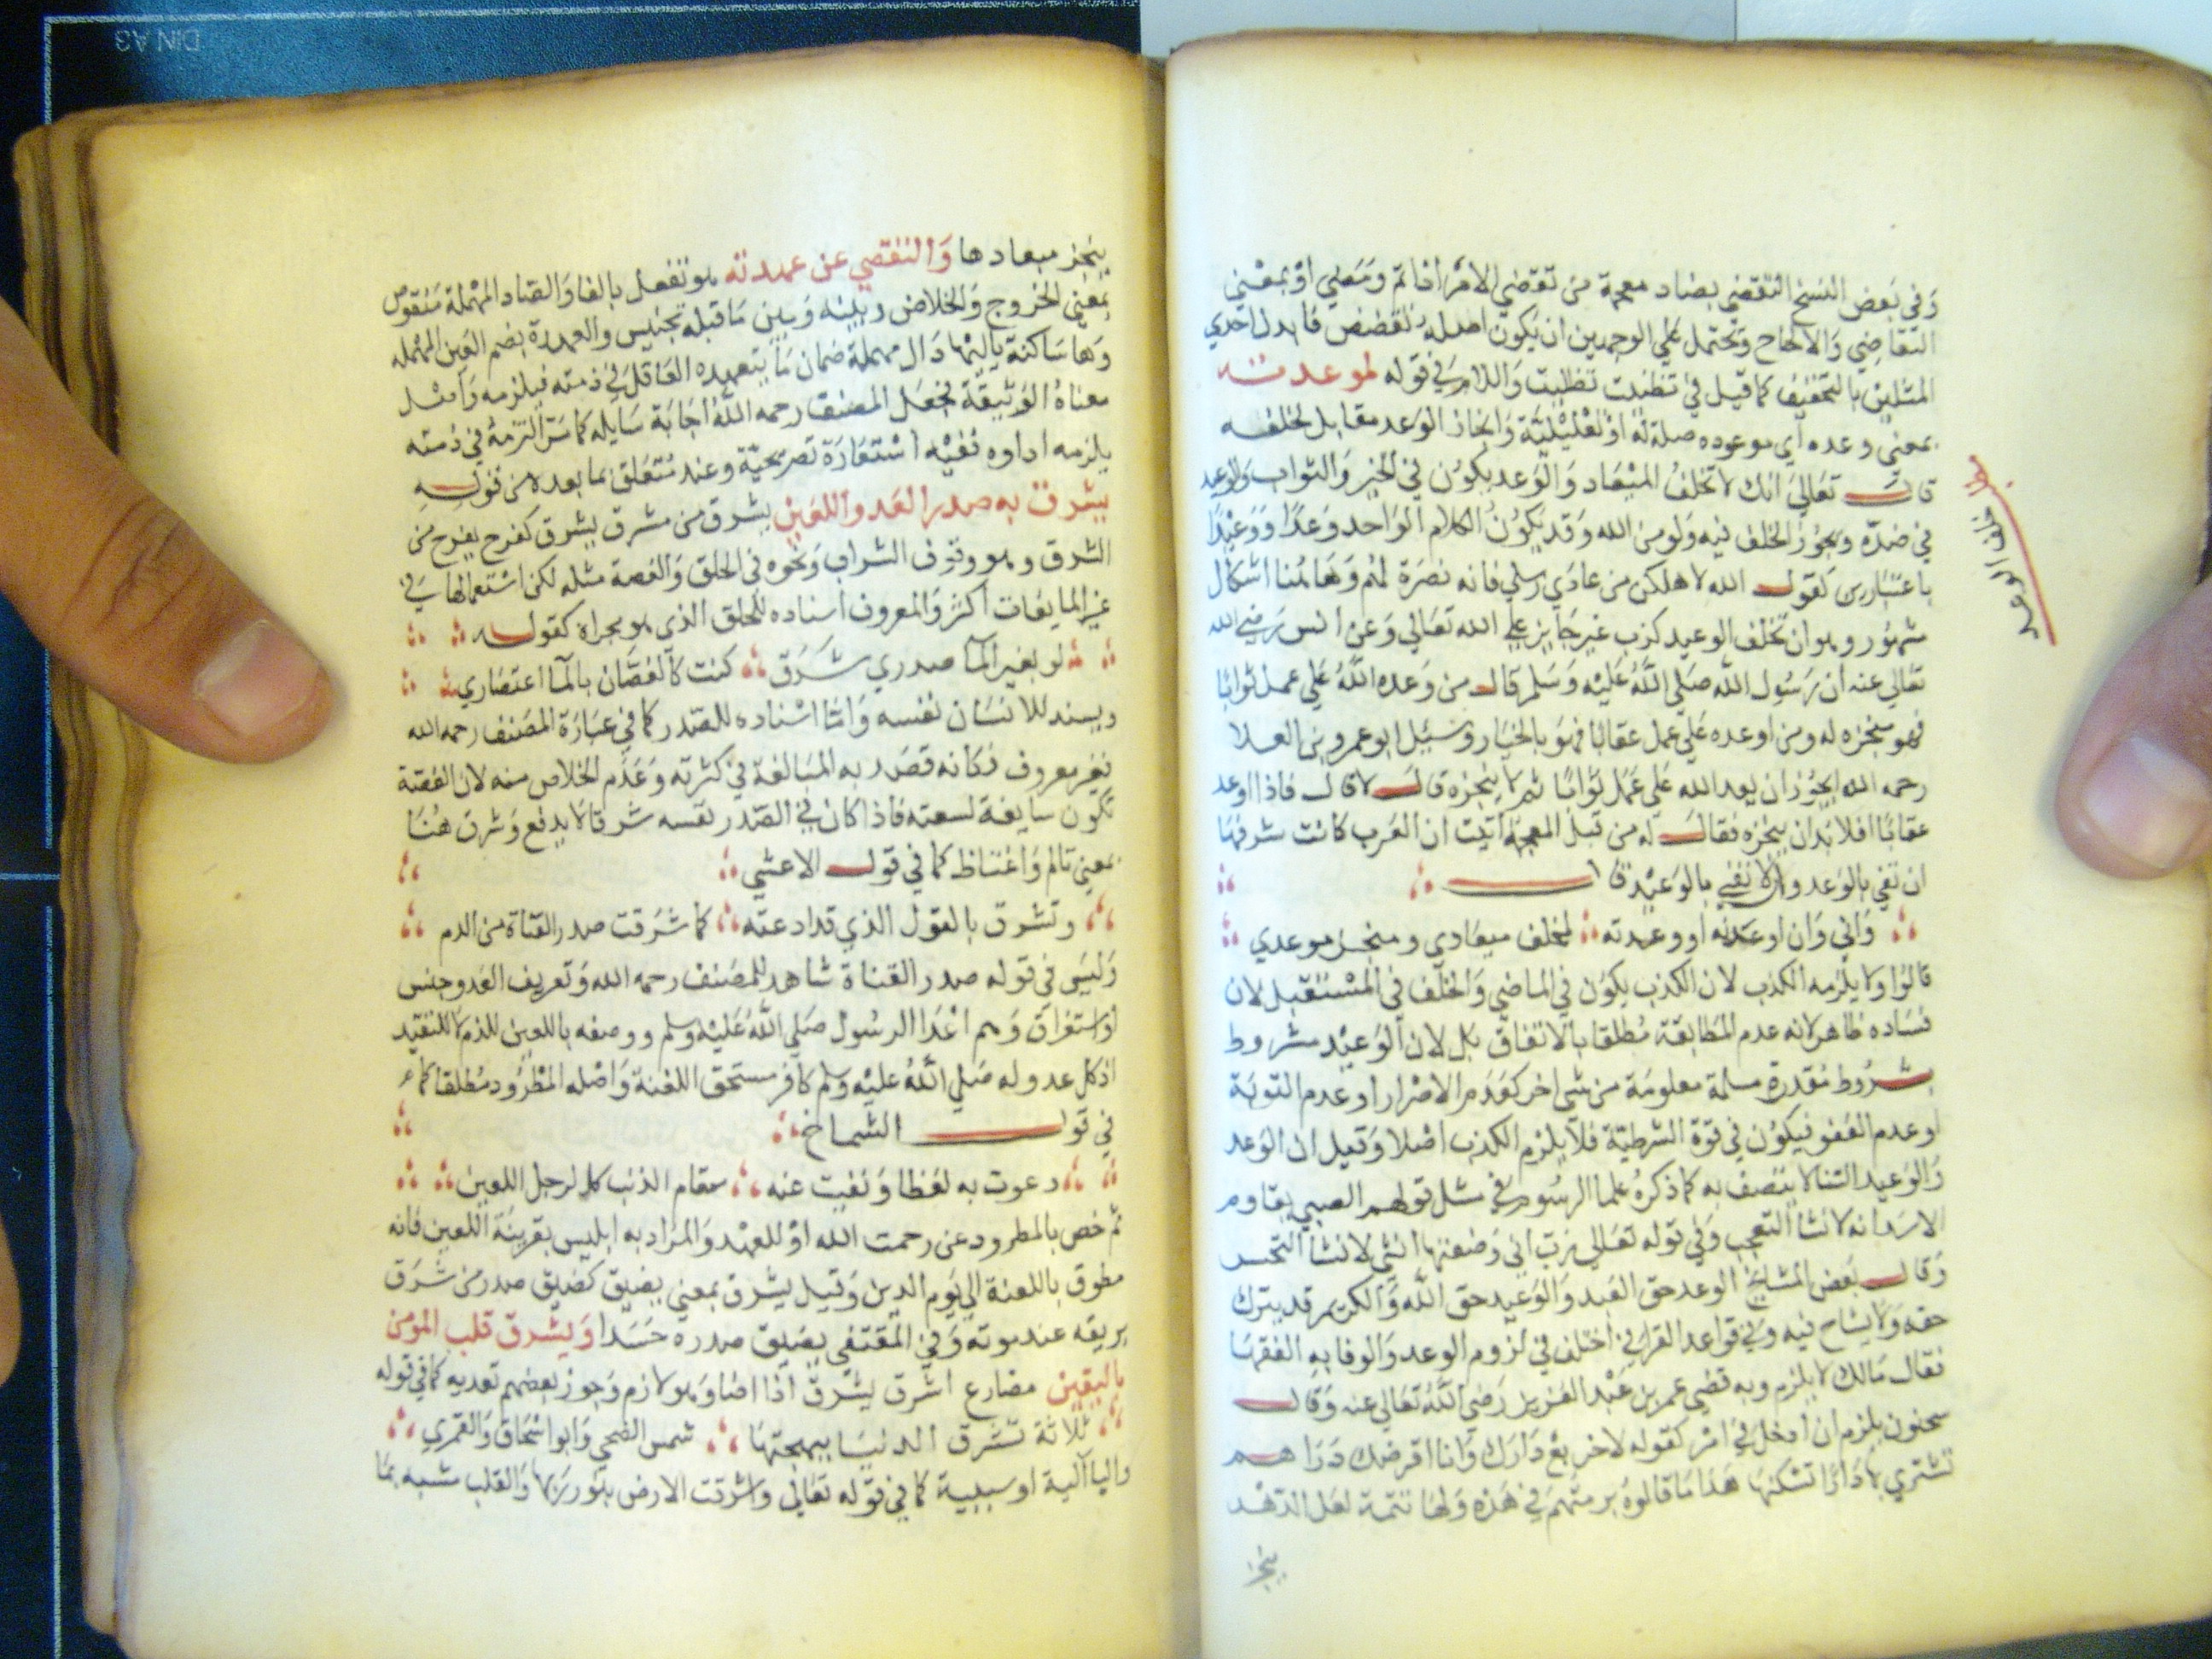 وفي بعض النسخ التقضي بضاد معجمة من تقضي الامر اذا تم ومضي او بمعني
التقاضي والالحاح وتحتمل علي الوجهين ان يكون اصله تقضض فابدل احدي
المثلين بالتخفيف كما قيل في تظننت تظنيت واللام في قوله لموعدته
بمعني وعده اي موعوده صلة له او تعليلية وانجاز الوعد مقابل لخلفه
قال تعالي انك لا تخلف الميعاد والوعد يكون في الخير والثواب والوعيد
في ضده ويجوز الخلف فيه ولو من الله وقد يكون الكلام الواحد وعدا ووعيدا
باعتبارين كقول الله لاهلكن من عادي رسلي فانه نصرة لهم وهاهنا اشكال
مشهور وهو ان تخلف الوعيد كذب غير جايز علي الله تعالي وعن انس رضي الله
تعالي عنه ان رسول الله صلي الله عليه وسلم قال من وعده الله علي عمل ثوابا
فهو منجزه له ومن اوعده علي عمل عقابا فهو بالخيار وسئيل ابو عمرو بن العلا
رحمه الله ايجوز ان يعد الله علي عمل ثوابا ثم لا ينجزه قال لا قال فاذا اوعد
عقابا افلا بد ان ينجزه فقال له من قبل العجمة اتيت ان العرب كانت شرفها
ان تفي بالوعد والا تفي بالوعيد قال
واني وان اوعدته او وعدته لمخلف ميعادي ومنجز موعدي
قالوا ولا يلزمه الكذب لان الكذب يكون في الماضي والخلف في المستقبل لان
فساده ظاهر لانه عدم المطابقة مطلقا بالاتفاق بل لان الوعيد مشروط
بشروط مقدرة مسلمة معلومة من شي اخر كعدم الاصرار او عدم التوبة
او عدم العفو فيكون في قوة الشرطية فلا يلزم الكذب اصلا وقيل ان الوعد
والوعيد انشا لا يتصف به كما ذكره علما الرسوم في مثل قولهم الصبي يقاوم
الاسد انه لانشا التعجب وفي قوله تعالي رب اني وضعتها انثي لانشا التحسر
وقال بعض المشايخ الوعد حق العبد والوعيد حق الله والكريم قد يترك
حقه ولا يشاح فيه وفي قواعد القرافي اختلف في لزوم الوعد والوفا به الفقها
فقال مالك لا يلزم وبه قضي عمر بن عبد العزيز رضي الله تعالي عنه وقال
سحنون يلزم ان ادخل في امر كقوله لاخر بع دارك وانا اقرضك دراهم
تشتري بها دارا تسكنها هذا ما قالوه برمتهم في هذه ولها تتمة لعل الدهر
ينجز
خلف الوعد
ينجز ميعادها والتفصي عن عهدته هو تفعل بالفا والصاد المهملة منقوص
بمعني الخروج والخلاص وبينه وبين ما قبله تجنيس والعهدة بضم العين المهمله
وها ساكنة يليها دال مهملة ضمان ما يتعهده العاقل في ذمته فيلزمه وامثل
معناه الوثيقة فجعل المصنف رحمه الله اجابة سايله كما سر التزمه في ذمته
يلزمه اداوه ففيه استعارة تصريحية وعند متعلق بما بعده من قوله
يشرق به صدر العدو اللعين يشرق من مشرق يشرق كفرح يفرح من
الشرق وهو وقوف الشراب ونحوه في الحلق والغصة مثله لكن استعمالها في
غير المايعات اكثر والمعروف اسناده للحلق الذي هو مجراه كقوله
لو بغير الما صدري شرق كنت كالغصان بالما اعتصاري
ويسند للانسان نفسه وامّا اسناده للصدر كما في عبارة المصنف رحمه الله
فغير معروف فكانه قصد به المبالغة في كثرته وعدم الخلاص منه لان الغصة
تكون سايغة لسعته فاذا كان في الصدر نفسه شرقا لا يدفع وشرق هنا
بمعني تالم واغتاظ كما في قول الاعشي
وتشرق بالقول الذي قد ادعته كما شرقت صدر القناة من الدم
وليس في قوله صدر القناة شاهد للمصنف رحمه الله وتعريف العدو جنس
او استغراق وهم اعدا الرسول صلي الله عليه وسلم ووصفه باللعين للذم لا للتقيد
اذ كل عدو له صلي الله عليه وسلم كافر مستحق اللعنة واصله المطرود مطلقا كما
في قول الشماخ
دعوت به لقطا ونفيت عنه مقام الذئب كالرجل اللعين
ثم خص بالمطرود عن رحمت الله او للعهد والمراد به ابليس بقرينة اللعين فانه
مطوق باللعنة الي يوم الدين وقيل يشرق بمعني يضيق كضيق صدر من شرق
بريقه عند موته وفي المقتفي يضيق صدره حسدا ويشرق قلب المؤمن
باليقين مضارع اشرق يشرق اذا اضا وهو لازم وجوز بعضهم تعديه كما في قوله
ثلاثة تشرق الدنيا ببهجتها شمس الضحي وابو اسحاق والقمري
والبا آلية او سببية كما في قوله تعالي واشرقت الارض بنور ربها والقلب مشبه بما